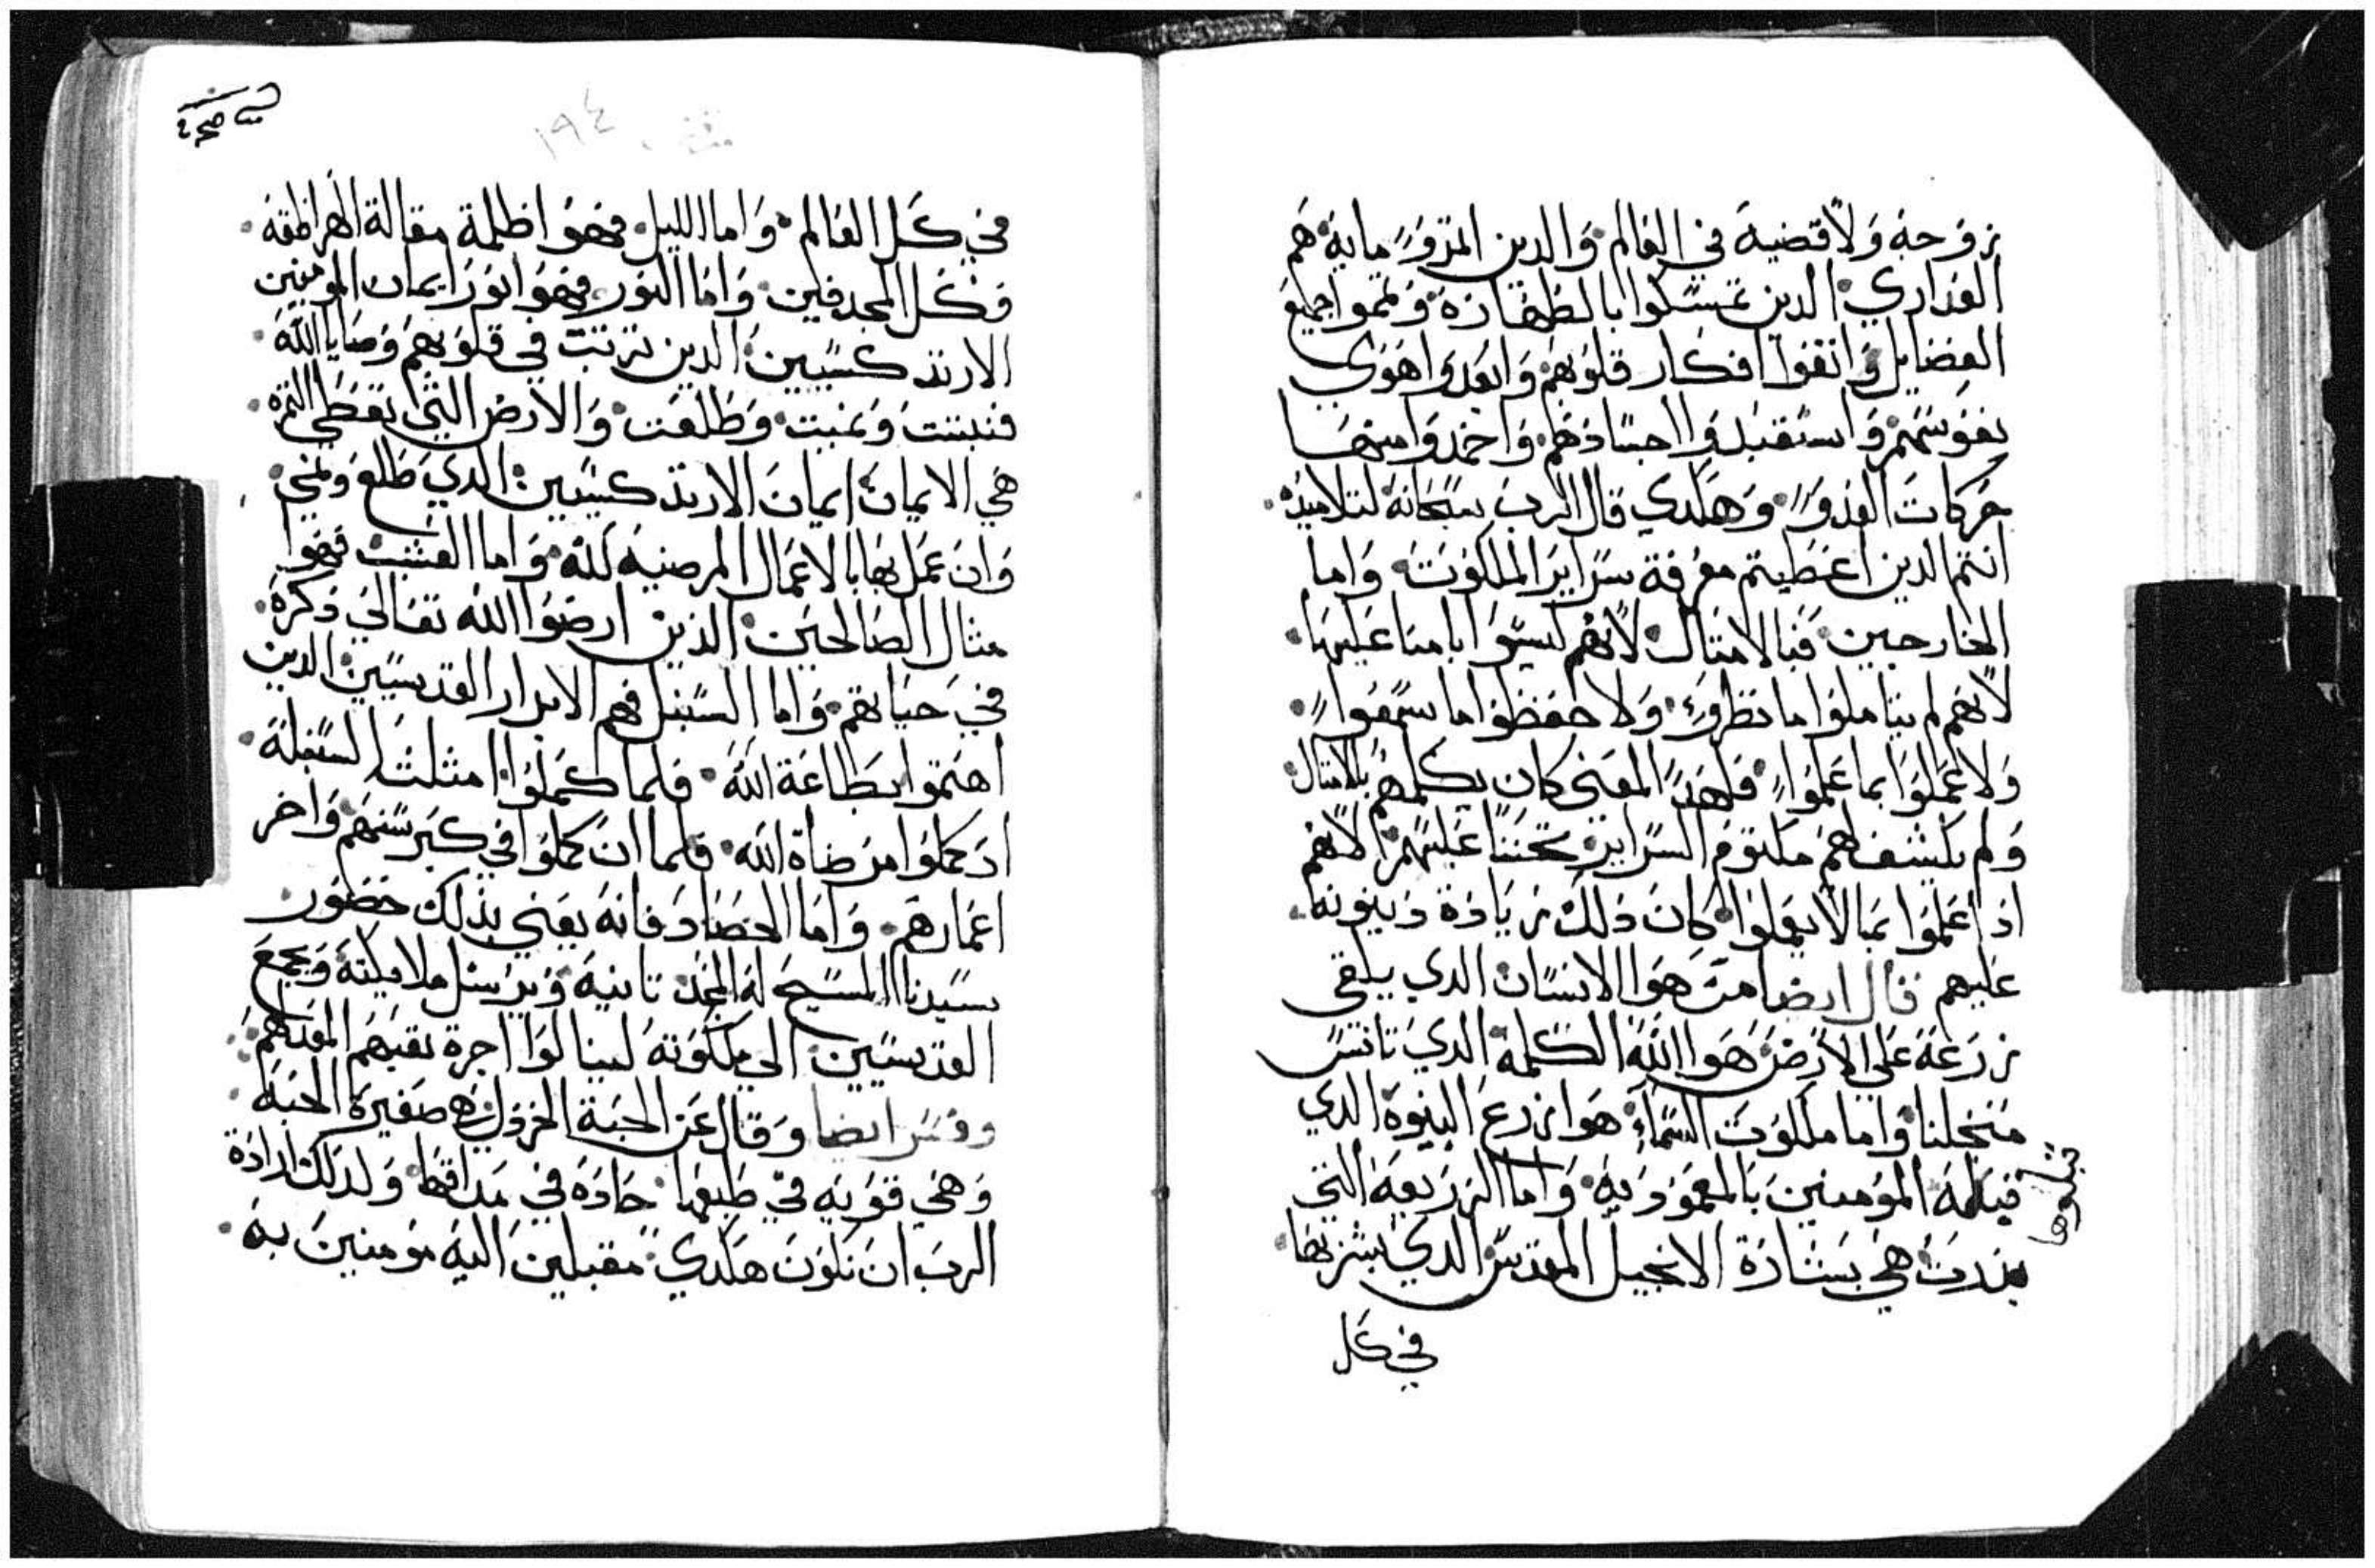 زوجة ولا قضية في العالم والدين المتزو ماية هم
العداري الدين تمسكوا بالطهارة وتمموا جميع
الفضايل وانقوا افكار قلوبهم وابعدوا هوي
نفوسهم واستعبدوا اجسادهم واخمدوا منها
حركات العدو وهكدي قال الرب سبحانة لتلاميدة
انتم الدين اعطيتم معرفة سراير الملكوت واما
الخارجين فبالامتال لانهم ليسوا بامنا عليها
لانهم لم يتاملوا ما نظروة ولا حفظوا ما سمعوا
ولا عملوا بما علموا فلهدا المعني كان يكلمهم بالامتال
ولم يكشف لهم مكتوم السراير تحننا عليهم لانهم
ادا علموا بما لا يعملوا كان دلك زيادة دينونة
عليهم قال ايضا من هو الانسان الدي يلقي
زرعة علي الارض هو الله الكلمة الدي تانس
من اجلنا واما ملكوت السماء هو زرع البنوة الدي
قبله المومنين بالمعمودية واما الزريعة التي
بدرت هي بشارة الانجيل المقدس الدي بشر بها
في كل
في كل العالم واما الليل فهو اظلمة مقالة الهراطقة
وكل المجدفين واما النور فهو انور ايمان المومنين
الارتدكسيين الدين ترتبت في قلوبهم وصايا الله
فنبتت ونمت وطلعت والارض التي تعطي التمرة
هي الايمان ايمان الارتدكسيين الدي طلع ونمي
وان عمل بها بالاعمال المرضية لله واما العشب فهوا
مثال الصالحين الذين ارضوا الله تعالي دكرة
في حياتهم واما السنبل فهم الابرار القديسين الدين
اهتموا بطاعة الله فلما كملوا امثلث السنبلة
اد كملوا مرضاة الله فلما ان كملوا في كبر سنهم واخر
اعمارهم واما الحصاد فانه يعني بذلك حضور
سيدنا المسيح له المجد تانية ويرسل ملايكتة ويجمع
القديسين الي ملكوتة لينالوا اجرة تعبهم المقدم
وفسر ايضا وقال عن الحبة الخردل هي صغيرة الحبة
وهي قوية في طبعها حادة في مداقها ولدلك اراد
الرب ان نكون هكدي مقبلين الية مومنين بة